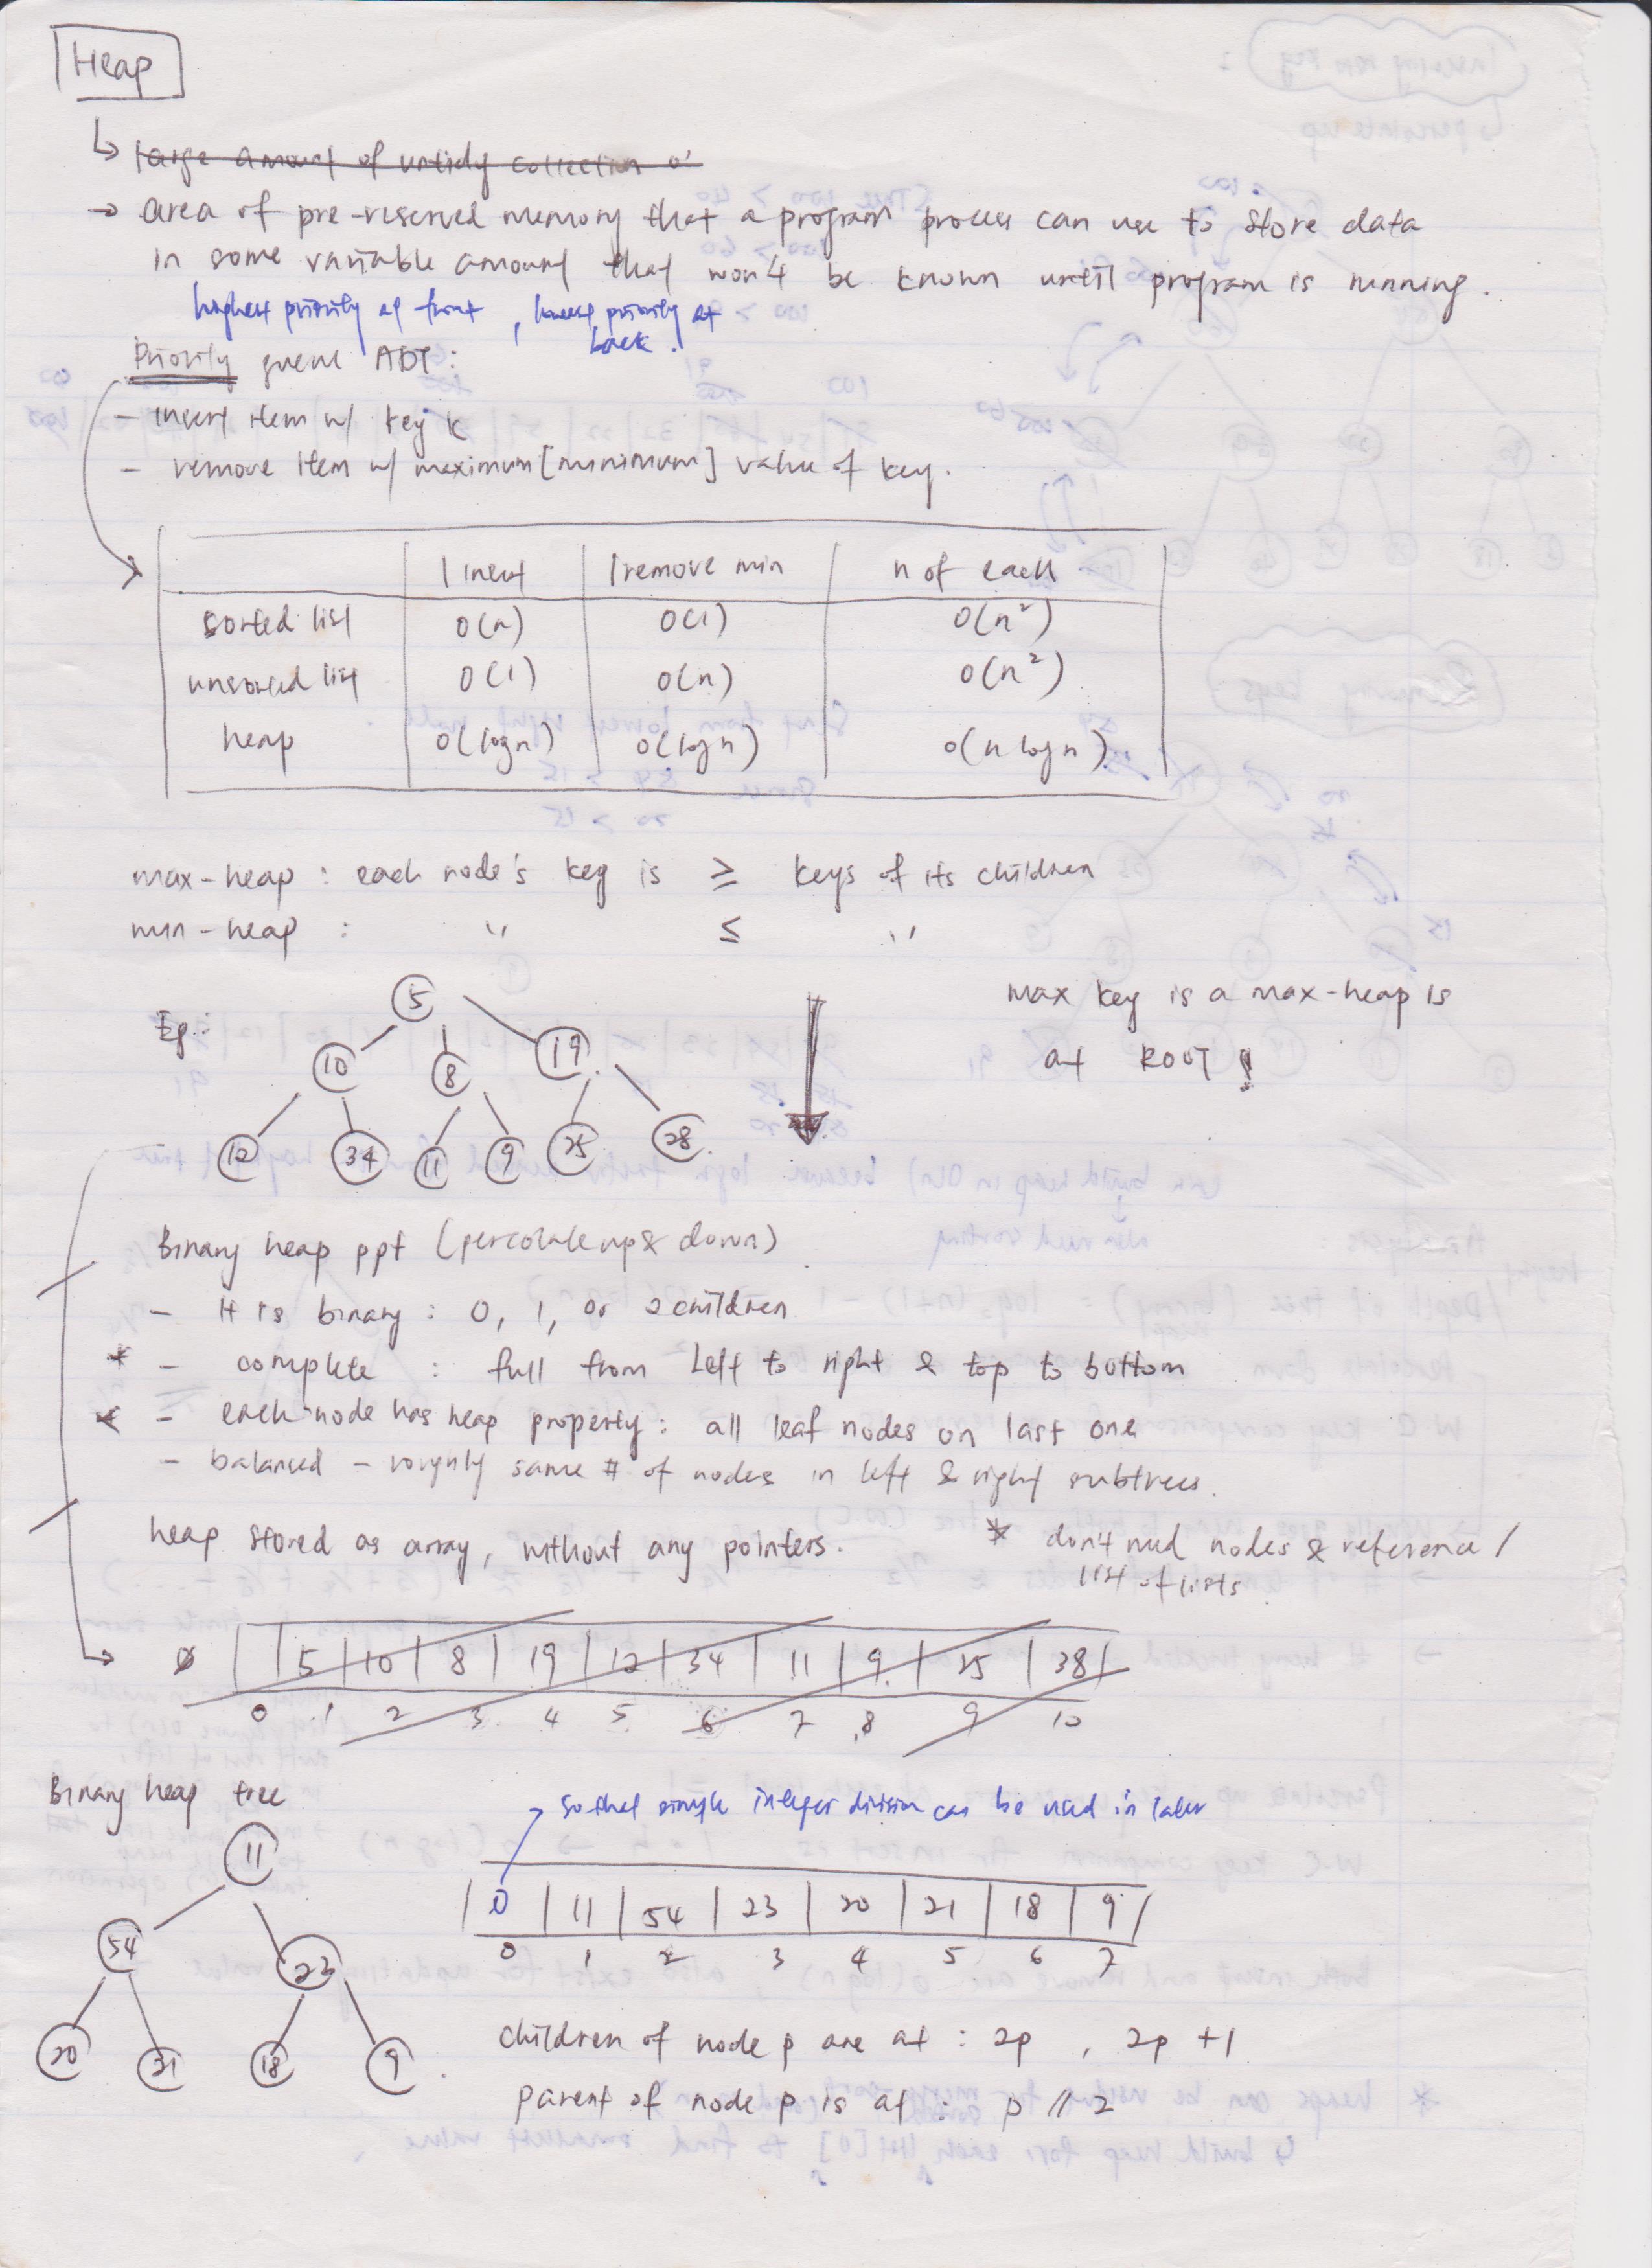 Heap
large amount of untidy collection o'
→ area of pre-reserved memory that a program process can use to store data
in some variable amount that won't be known until program is running.
highest priority at front, lowest priority at
back.
Priority queue ADT:
- insert item w/ key k
- remove item w/ maximum [minimum] value of key.
1 insert | 1 remove min | n of each
sorted list | O(n) | O(1) | O(n²)
unsorted list | O(1) | O(n) | O(n²)
heap | O(logn) | O(logn) | O(n logn)
max-heap : each node's key is ≥ keys of its children
min-heap : " ≤ "
max key is a max-heap is
Eg:
5
at ROOT!
10 8 19
12 34 11 9 25 28
Binary heap ppt (percolate up & down)
- It is binary : 0, 1, or 2 children
* - complete : full from left to right & top to bottom
* - each node has heap property: all leaf nodes on last one
- balanced - roughly same # of nodes in left & right subtrees.
heap stored as array, without any pointers.
* don't need nodes & reference /
list of lists
0 | | 5 | 10 | 8 | 19 | 12 | 34 | 11 | 9 | 25 | 38 |
0 1 2 3 4 5 6 7 8 9 10
Binary heap tree
so that simple integer division can be used in later
11
| 0 | 11 | 54 | 23 | 20 | 21 | 18 | 9 |
0 1 2 3 4 5 6 7
54 23
20 21 18 9
children of node p are at : 2p , 2p +1
parent of node p is at : p // 2